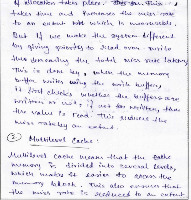 if allocation takes place. 
takes time and the miss rate
to an extent but which is
But if we make the system different
for giving priority to read over write
thus decreasing the total miss rate latency
This is done by, when the memory
buffer writes into the write buffer,
it first checks whether the buffers are
written or not, if not for written, then
the value is read. This reduces the
miss rate by an extent.
③ Multilevel Cache :
Multilevel cache means that the cache
memory is divided into several levels,
which makes it easier to access the
memory block. This also ensures that
the miss rate is reduced to an extent